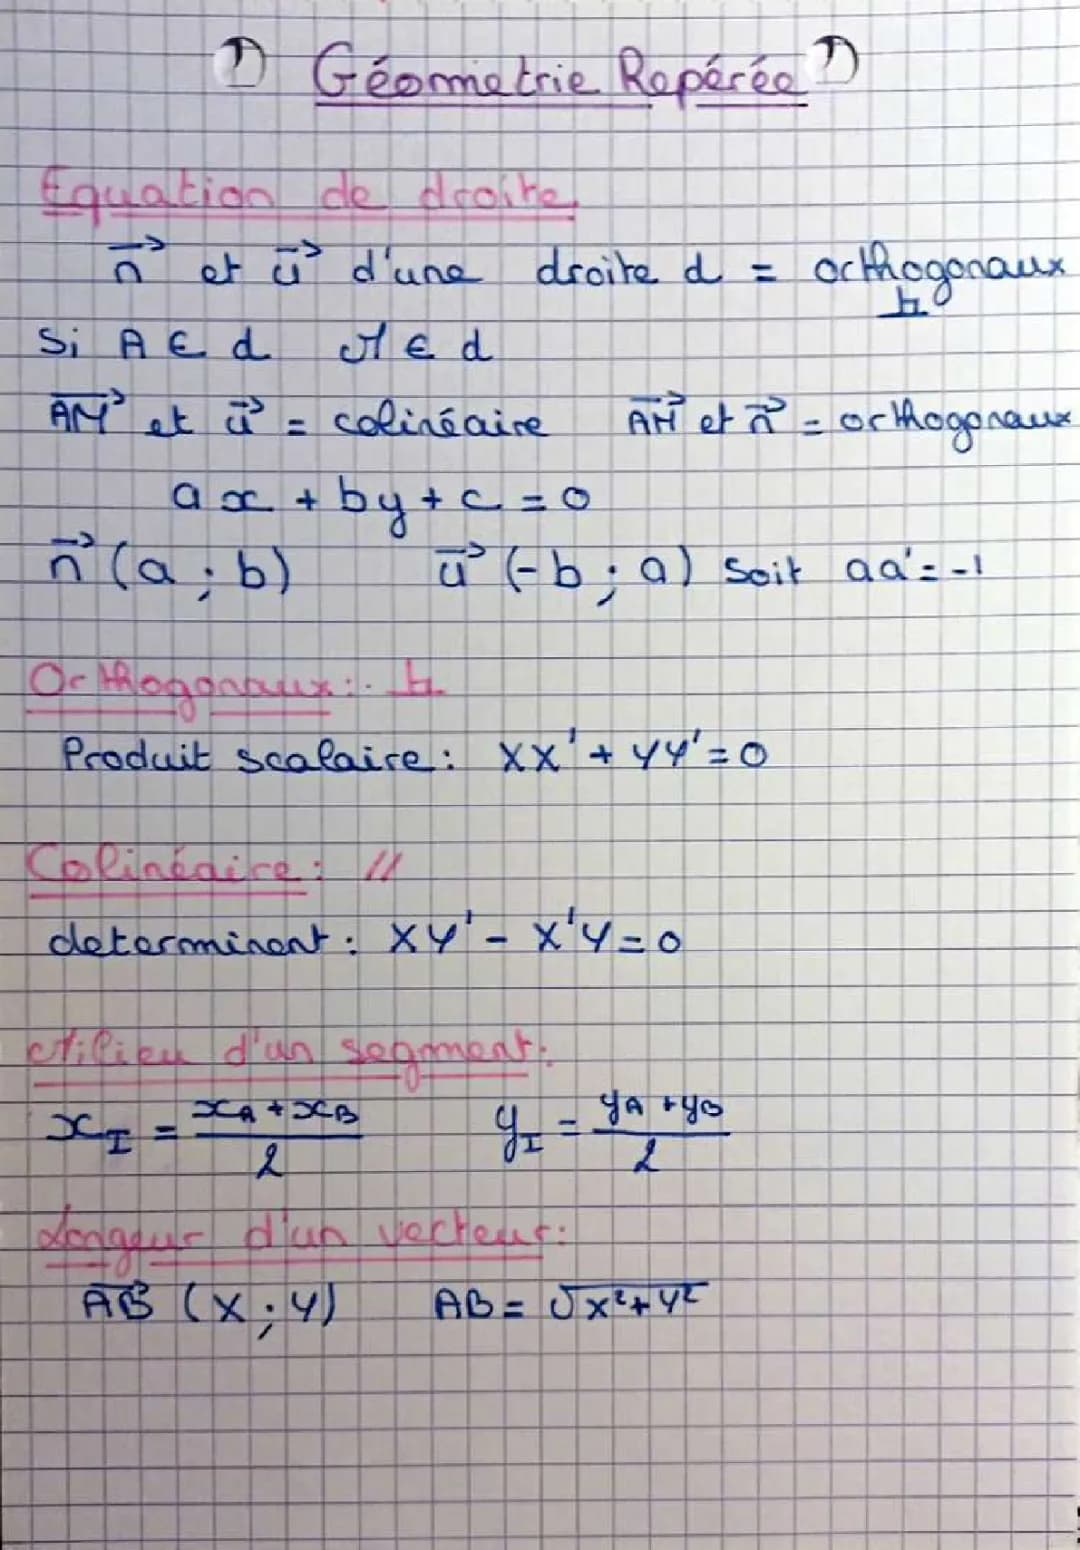 ① Géométrie Repérée ①
Equation de droite
n⃗ et u⃗ d'une droite d = orthogonaux
Si A ∈ d M ∈ d
AM⃗ et u⃗ = colinéaire AM⃗ et n⃗ = orthogonaux
ax + by + c = 0
n⃗ (a ; b) u⃗ (-b ; a) soit aa' = -1
Orthogonaux :
Produit scalaire : XX' + YY' = 0
Colinéaire : //
determinant : XY' - X'Y = 0
Milieu d'un segment :
x_I = (x_A + x_B)/2 y_I = (y_A + y_B)/2
Longeur d'un vecteur :
AB⃗ (X ; Y) AB = √(X² + Y²)